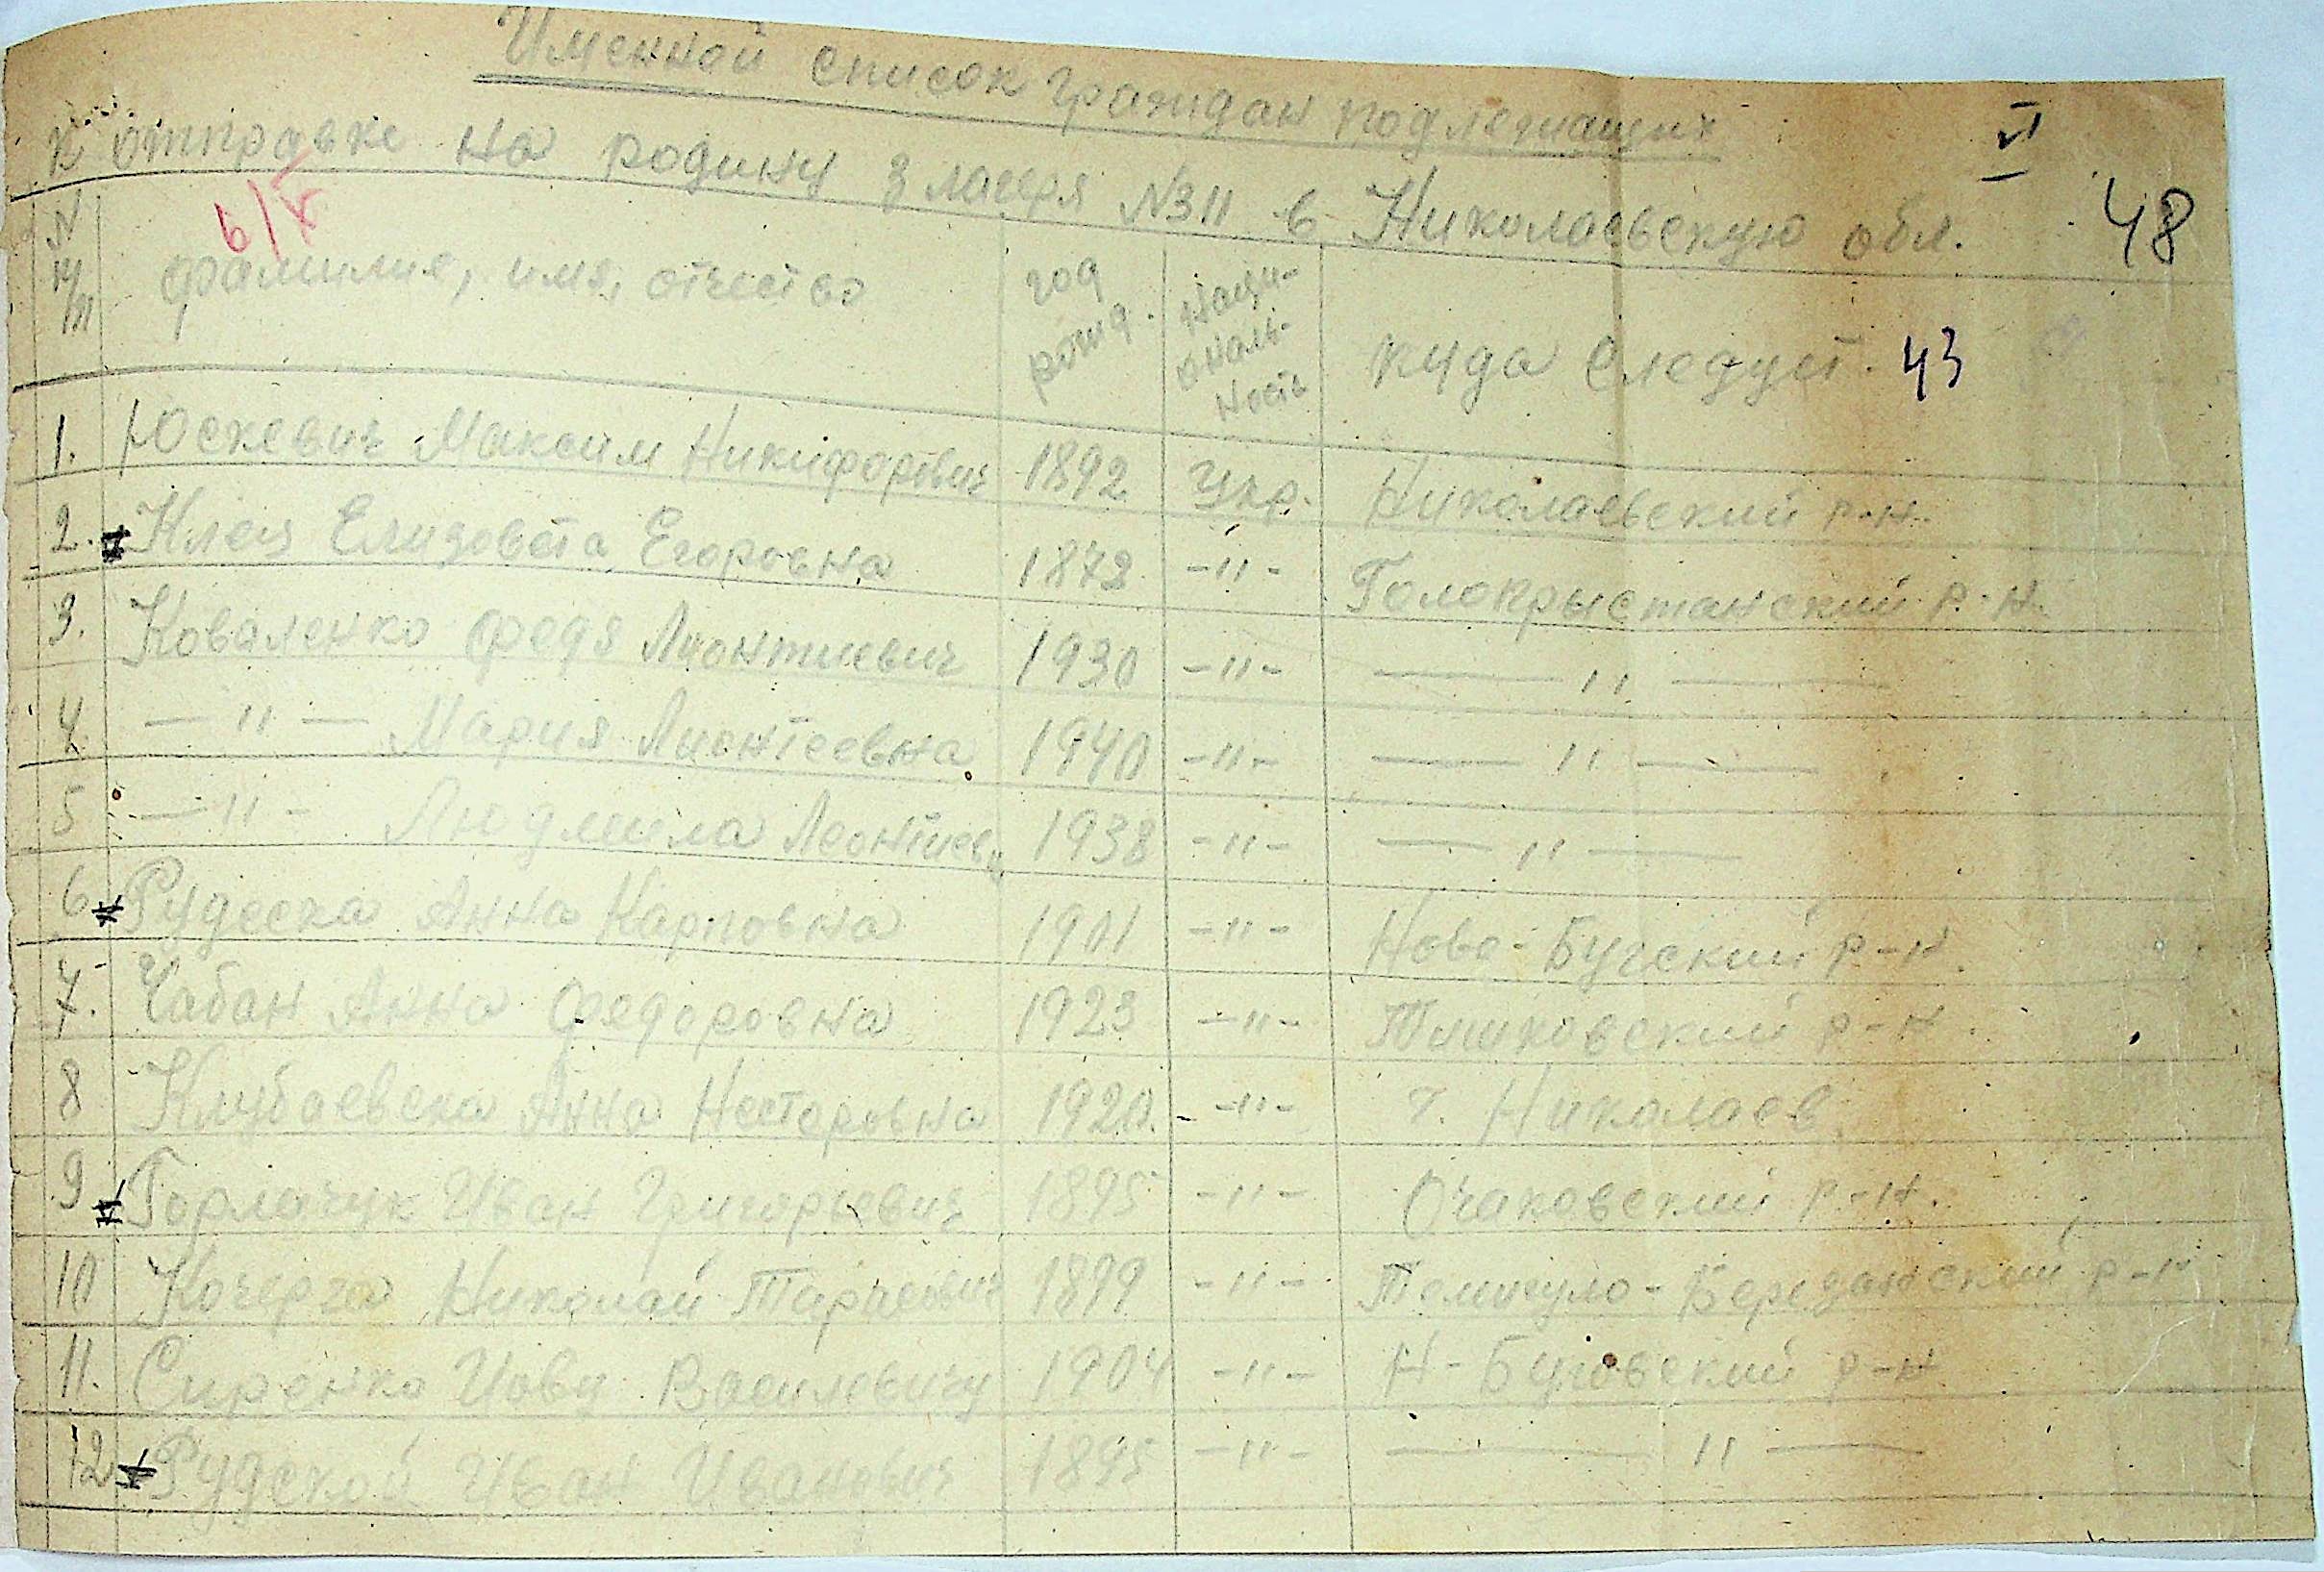 Именной список граждан подлежащих
VI
к отправке на родину з лагеря №311 в Николаевскую обл.
48
6/X
N п/п фамилия, имя, отчество год рожд. Наци-ональ-ность куда следует. 43
1. Юскевич Максим Никифорович 1892 Укр. Николаевский р-н.
2. Клец Елизовета Егоровна 1872 -"- Голопрыстанский р-н.
3. Коваленко Федя Леонтиевич 1930 -"- — " —
4. — " — Мария Лионтеевна 1940 -"- — " —
5 — " - Людмила Леонтиевн 1938 -"- — " —
6 Рудеска Анна Карповна 1901 -"- Ново-Бугский р-н
7. Чабан Анна Федоровна 1923 -"- Тишковский р-н.
8 Анна Несторовна 1920. -"- г. Николаев
9 Горлачук Иван Григорьевич 1895 -"- Очаковский р-н.
10 Кочерга Николай 1899 -"- Телигуло-Березанский р-н
11. Сиренко Иову Василевичу 1904 -"- Н-Буговский р-н
12 Рудской Иван Иванович 1895 -"- — " —